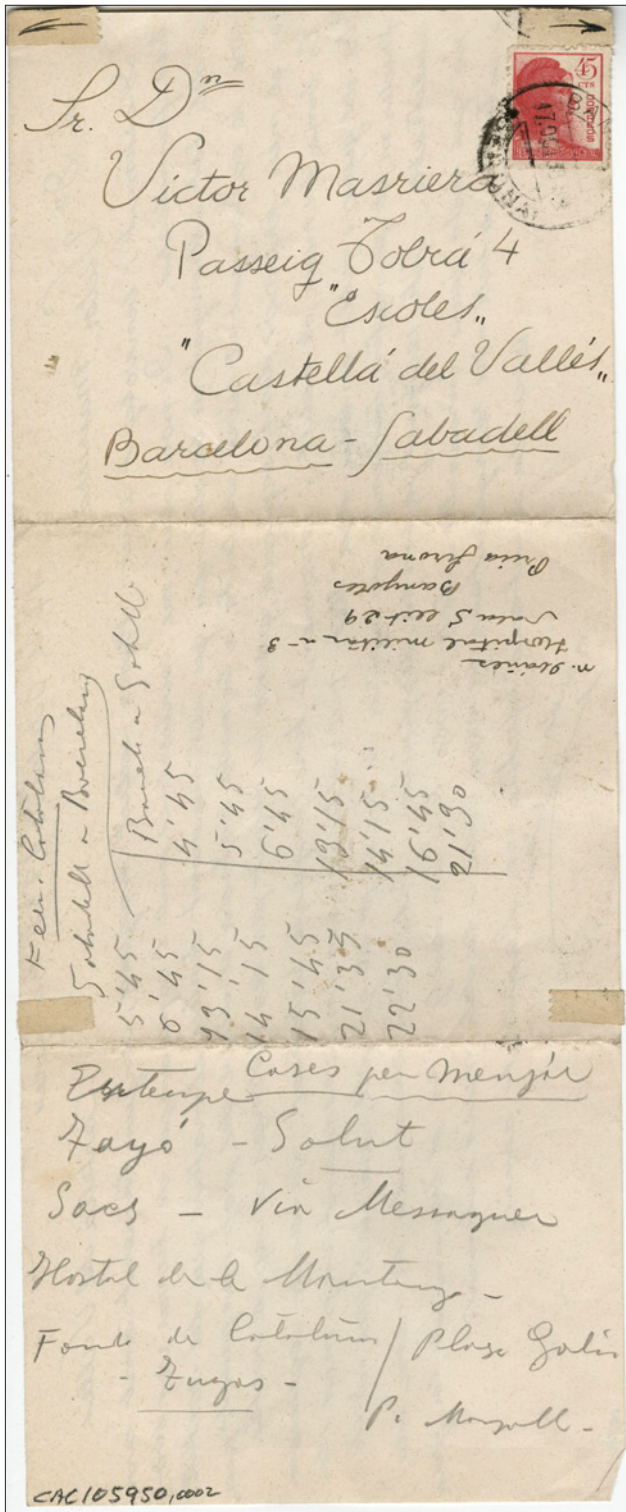 Sr. Dn
Victor Masriera
Passeig Tolrá 4
"Escoles"
"Castellá del Vallés"
Barcelona - Sabadell
45
CTS
CORREOS
Hospital militar n-3
Sala 5 llit 29
Banyoles
Girona
Ferr. Catalans
Sabadell a Barcelona
5'45
6'45
13'15
14'15
15'45
21'35
22'30
4'45
5'45
6'45
13'15
14'15
16'45
21'30
Cases per menjár
Fayó - Salut
Sacs - Via Messaguer
Hostal de la Montanya -
Fonda de Catalunya / Plaça Galán
P. Margall -
CAC105950,0002